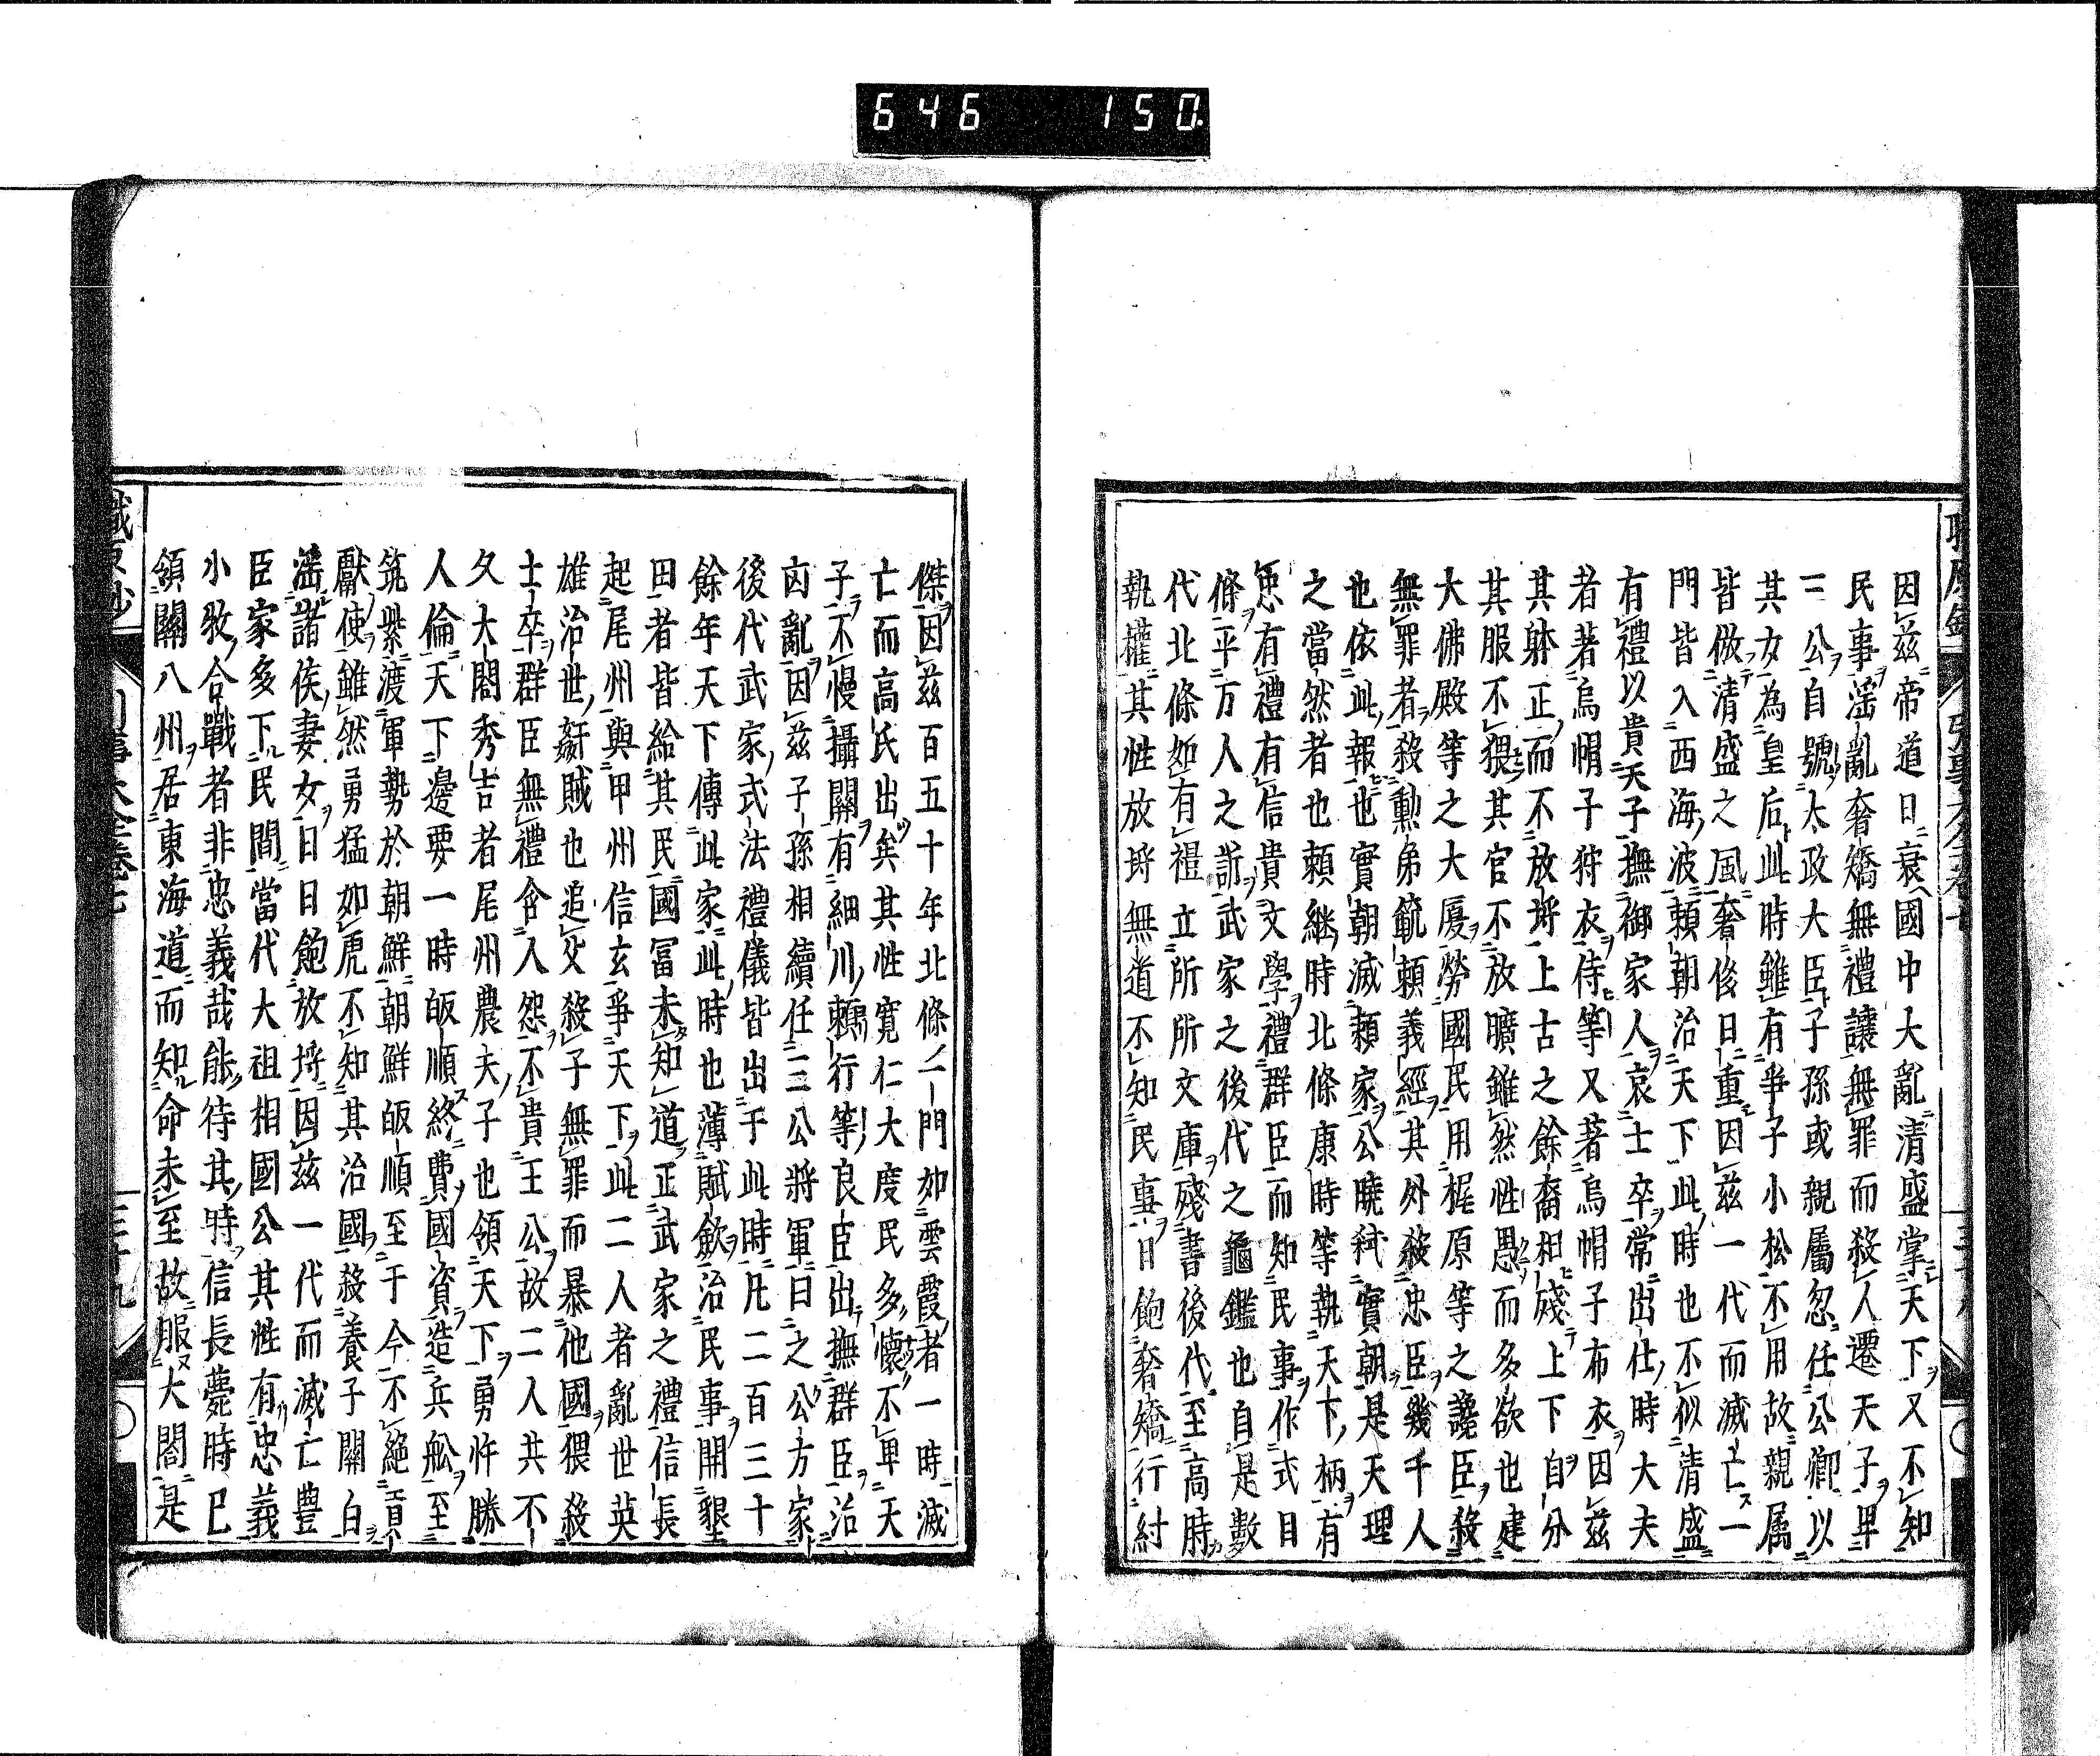 646 150
因茲帝道日衰國中大亂清盛掌天下又不知
民事滛亂奢矯無禮讓無罪而殺人遷天子卑
三公自號太政大臣子孫或親屬忽任公卿以
其女為皇后此時雖有爭子小松不用故親属
皆倣清盛之風奢侈日重因茲一代而滅亡一
門皆入西海波頼朝治天下此時也不似清盛
有禮以貴天子撫御家人哀士卒常出仕時大夫
者著烏帽子狩衣侍等又著烏帽子布衣因茲
其躰正而不放埓上古之餘裔相殘上下自分
其服不猥其官不放曠雖然性愚而多欲也建
大佛殿等之大厦勞國民用梶原等之讒臣殺
無罪者殺勲弟範頼義經其外殺忠臣幾千人
也依此報也實朝滅頼家公曉弑實朝是天理
之當然者也頼継時北條康時等執天下柄有
恵有禮有信貴文學禮群臣而知民事作式目
條平万人之訴武家之後代之龜鑑也自是數
代北條如有禮立所所文庫殘書後代至高時
執權其性放埓無道不知民事日飽奢矯行紂
傑因茲百五十年北條ノ一門如雲霞者一時滅
亡而高氏出矣其性寛仁大度民多懐不卑天
子不慢攝關有細川頼行等良臣出撫群臣治
囟亂因茲子孫相續任三公將軍曰之公方家
後代武家式法禮儀皆出于此時凡二百三十
餘年天下傳此家此時也薄賦歛治民事開墾
田者皆給其民國冨未知道正武家之禮信長
起尾州與甲州信玄爭天下此二人者亂世英
雄治世姧賊也追父殺子無罪而暴他國猥殺
士卒群臣無禮含人怨不貴王公故二人共不
久大閤秀吉者尾州農夫子也領天下勇忤勝
人倫天下邊要一時皈順終費國資造兵舩至
筑紫渡軍勢於朝鮮朝鮮皈順至于今不絶貢
獻使雖然勇猛如虎不知其治國殺養子關白
滛諸侯妻女日日飽放埓因茲一代而滅亡豊
臣家多下民間當代大祖相國公其性有忠義
小牧合戰者非忠義哉能待其時信長薨時已
領關八州居東海道而知命未至故服大閤是